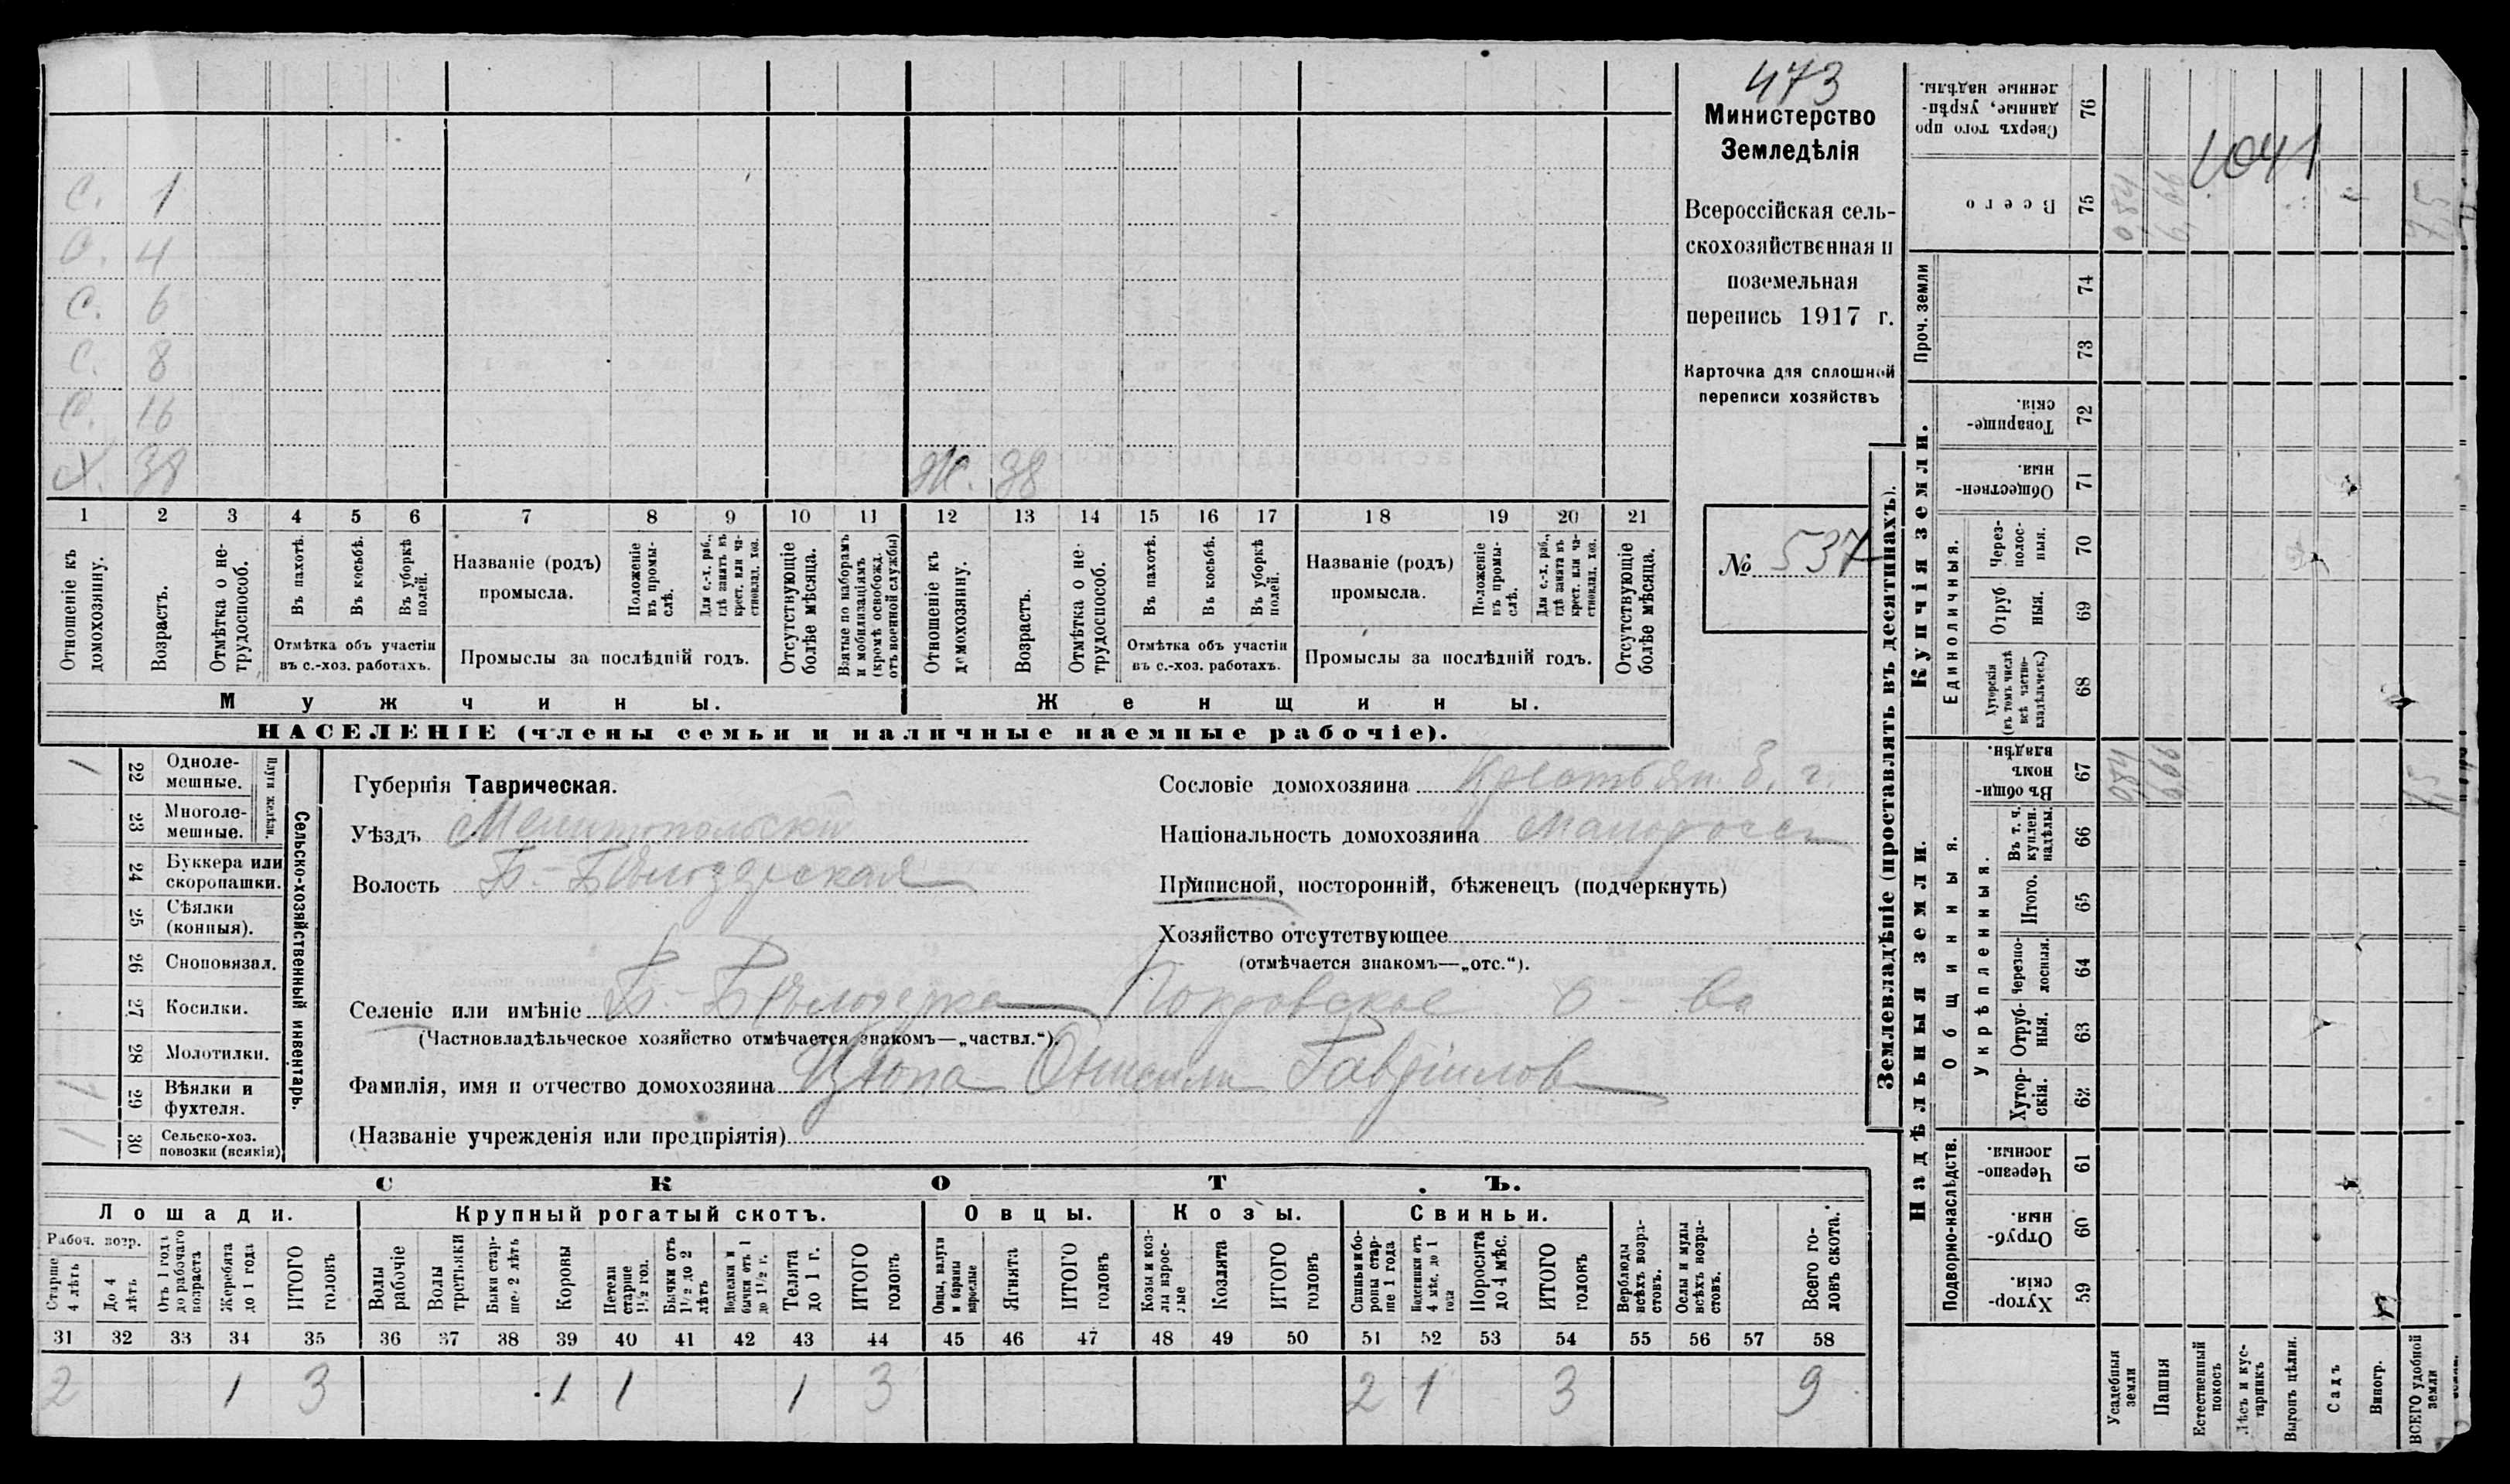 473
Министерство
Земледѣлія
Всероссійская сель-
скохозяйственная и
поземельная
перепись 1917 г.
Карточка для сплошной
переписи хозяйствъ
№ 537
С. 1
С. 4
С. 6
С. 8
С. 16
Х. 38
Ж. 38
1 2 3 4 5 6 7 8 9 10 11 12 13 14 15 16 17 18 19 20 21
Отношеніе къ домохозяину.
Возрастъ.
Отмѣтка о не-трудоспособ.
Въ пахотѣ.
Въ косьбѣ.
Въ уборкѣ полей.
Отмѣтка объ участіи
въ с.-хоз. работахъ.
Названіе (родъ)
промысла.
Положеніе въ промы-слѣ.
Для с.-х. раб., гдѣ занятъ въ крест. или ча-стновлад. хоз.
Промыслы за послѣдній годъ.
Отсутствующіе болѣе мѣсяца.
Взятые по наборамъ и мобилизаціямъ (кромѣ освобожд. отъ военной службы)
Отношеніе къ домохозяину.
Возрастъ.
Отмѣтка о не-трудоспособ.
Въ пахотѣ.
Въ косьбѣ.
Въ уборкѣ полей.
Отмѣтка объ участіи
въ с.-хоз. работахъ.
Названіе (родъ)
промысла.
Положеніе въ промы-слѣ.
Для с.-х. раб., гдѣ занята въ крест. или ча-стновлад. хоз.
Промыслы за послѣдній годъ.
Отсутствующіе болѣе мѣсяца.
Мужчины.
Женщины.
НАСЕЛЕНІЕ (члены семьи и наличные наемные рабочіе).
Сельско-хозяйственный инвентарь.
Плуги желѣзн.
1 22 Одноле-мешные.
23 Многоле-мешные.
24 Буккера или скоропашки.
25 Сѣялки (конныя).
26 Сноповязал.
27 Косилки.
28 Молотилки.
1 29 Вѣялки и фухтеля.
1 30 Сельско-хоз. повозки (всякія)
Губернія Таврическая.
Уѣздъ Мелитопольскій
Волость Б.-Бѣлозерская
Сословіе домохозяина Крестьян. б. г.
Національность домохозяина Малоросс
Приписной, посторонній, бѣженецъ (подчеркнуть)
Хозяйство отсутствующее
(отмѣчается знакомъ—„отс.“).
Селеніе или имѣніе Б.-Бѣлозерка Покровское о-во
(Частновладѣльческое хозяйство отмѣчается знакомъ—„частвл.“).
Фамилія, имя и отчество домохозяина Цюпа Гавріилов
(Названіе учрежденія или предпріятія)
СКОТЪ.
Лошади. Крупный рогатый скотъ. Овцы. Козы. Свиньи.
Рабоч. возр.
Старше 4 лѣтъ
До 4 лѣтъ
Отъ 1 года до рабочаго возраста
Жеребята до 1 года
ИТОГО головъ
Волы рабочіе
Волы третьяки
Быки стар-ше 2 лѣтъ
Коровы
Нетели старше 1½ год.
Бычки отъ 1½ до 2 лѣтъ
Подтелки и бычки отъ 1 до 1½ г.
Телята до 1 г.
ИТОГО головъ
Овцы, валухи и бараны взрослые
Ягнята
ИТОГО головъ
Козы и коз-лы взрос-лые
Козлята
ИТОГО головъ
Свиньи и бо-ровы стар-ше 1 года
Подсвинки отъ 4 мѣс. до 1 года
Поросята до 4 мѣс.
ИТОГО головъ
Верблюды всѣхъ возра-стовъ.
Ослы и мулы всѣхъ возра-стовъ.
Всего го-ловъ скота.
31 32 33 34 35 36 37 38 39 40 41 42 43 44 45 46 47 48 49 50 51 52 53 54 55 56 57 58
2 1 3 1 1 1 3 2 1 3 9
Землевладѣніе (проставлять въ десятинахъ).
Надѣльныя земли.
Купчія земли.
Проч. земли
Подворно-наслѣдств.
Общинныя.
Укрѣпленныя.
Единоличныя.
76 Сверхъ того про данные, укрѣп-ленные надѣлы.
75 Всего
74
73
72 Товарище-скія.
71 Обществен-ныя.
70 Через-полос-ныя.
69 Отруб ныя.
68 Хуторскія (въ томъ числѣ всѣ частно-владѣльческ.)
67 Въ общин-номъ владѣн.
66 Въ т. ч. куплен. надѣлы.
65 Итого.
64 Черезпо-лосныя.
63 Отруб-ныя.
62 Хутор-скія.
61 Черезпо-лосныя.
60 Отруб-ныя.
59 Хутор-скія.
1041
0,84 6,66 7,5
0,84 6,66 7,5
Усадебныя земли
Пашня
Естественный покосъ
Лѣсъ и кус-тарникъ
Выгонъ цѣлин.
Садъ
Виногр.
ВСЕГО удобной земли